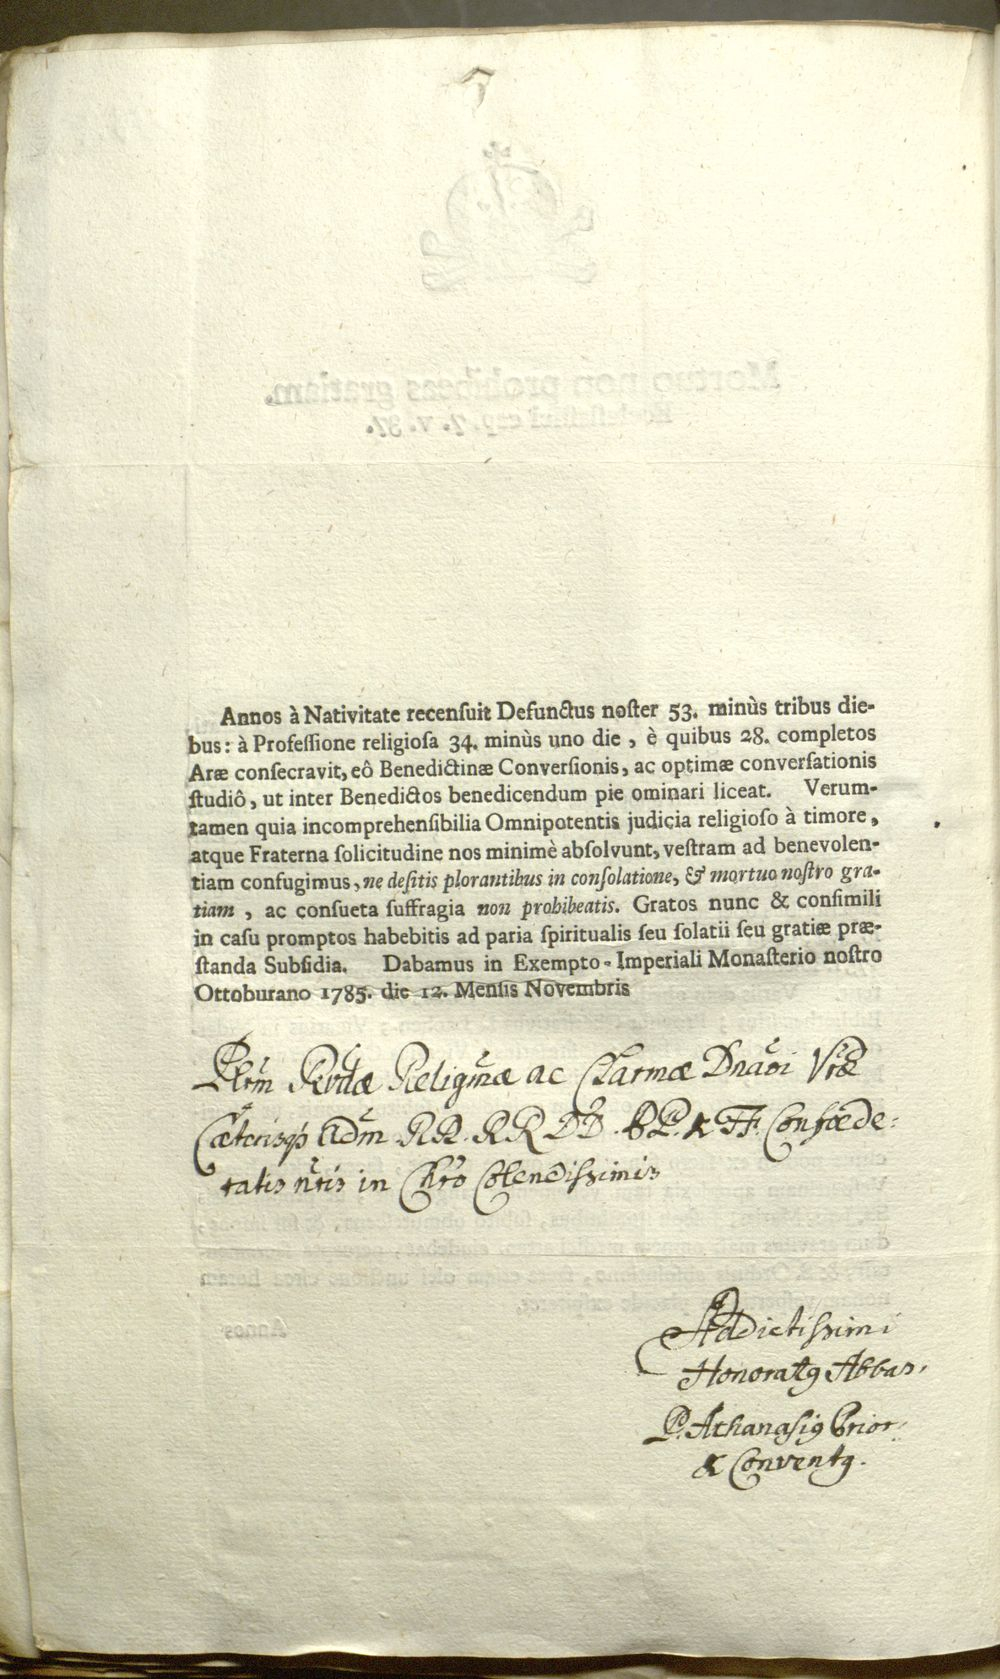 Annos à Nativitate recenſuit Defunctus noſter 53. minùs tribus die-
bus: à Profeſſione religioſa 34. minùs uno die, è quibus 28. completos
Aræ conſecravit, eô Benedictinæ Converſionis, ac optimæ converſationis
ſtudiô, ut inter Benedictos benedicendum pie ominari liceat. Verum-
tamen quia incomprehenſibilia Omnipotentis judicia religioſo à timore,
atque Fraterna ſolicitudine nos minimè abſolvunt, veſtram ad benevolen-
tiam confugimus, ne deſitis plorantibus in conſolatione, & mortuo noſtro gra-
tiam, ac conſueta ſuffragia non prohibeatis. Gratos nunc & conſimili
in caſu promptos habebitis ad paria ſpiritualis ſeu ſolatii ſeu gratiæ præ-
ſtanda Subſidia. Dabamus in Exempto-Imperiali Monaſterio noſtro
Ottoburano 1785. die 12. Menſis Novembris
Plrm Rvdæ Religmæ ac Clarmæ Dnaõi Vræ
Cæterisq Adm RR. RR DD. PP. & FF. Confœde-
ratis nris in Chro Colendiſsimis
Addictiſsimi
Honoratꝰ Abbas.
P. Athanaſiꝰ Prior
& Conventꝰ.
Mortuo non prohibeas gratiam.
Eccleſiaſtici cap. 7. v. 37.
Annos